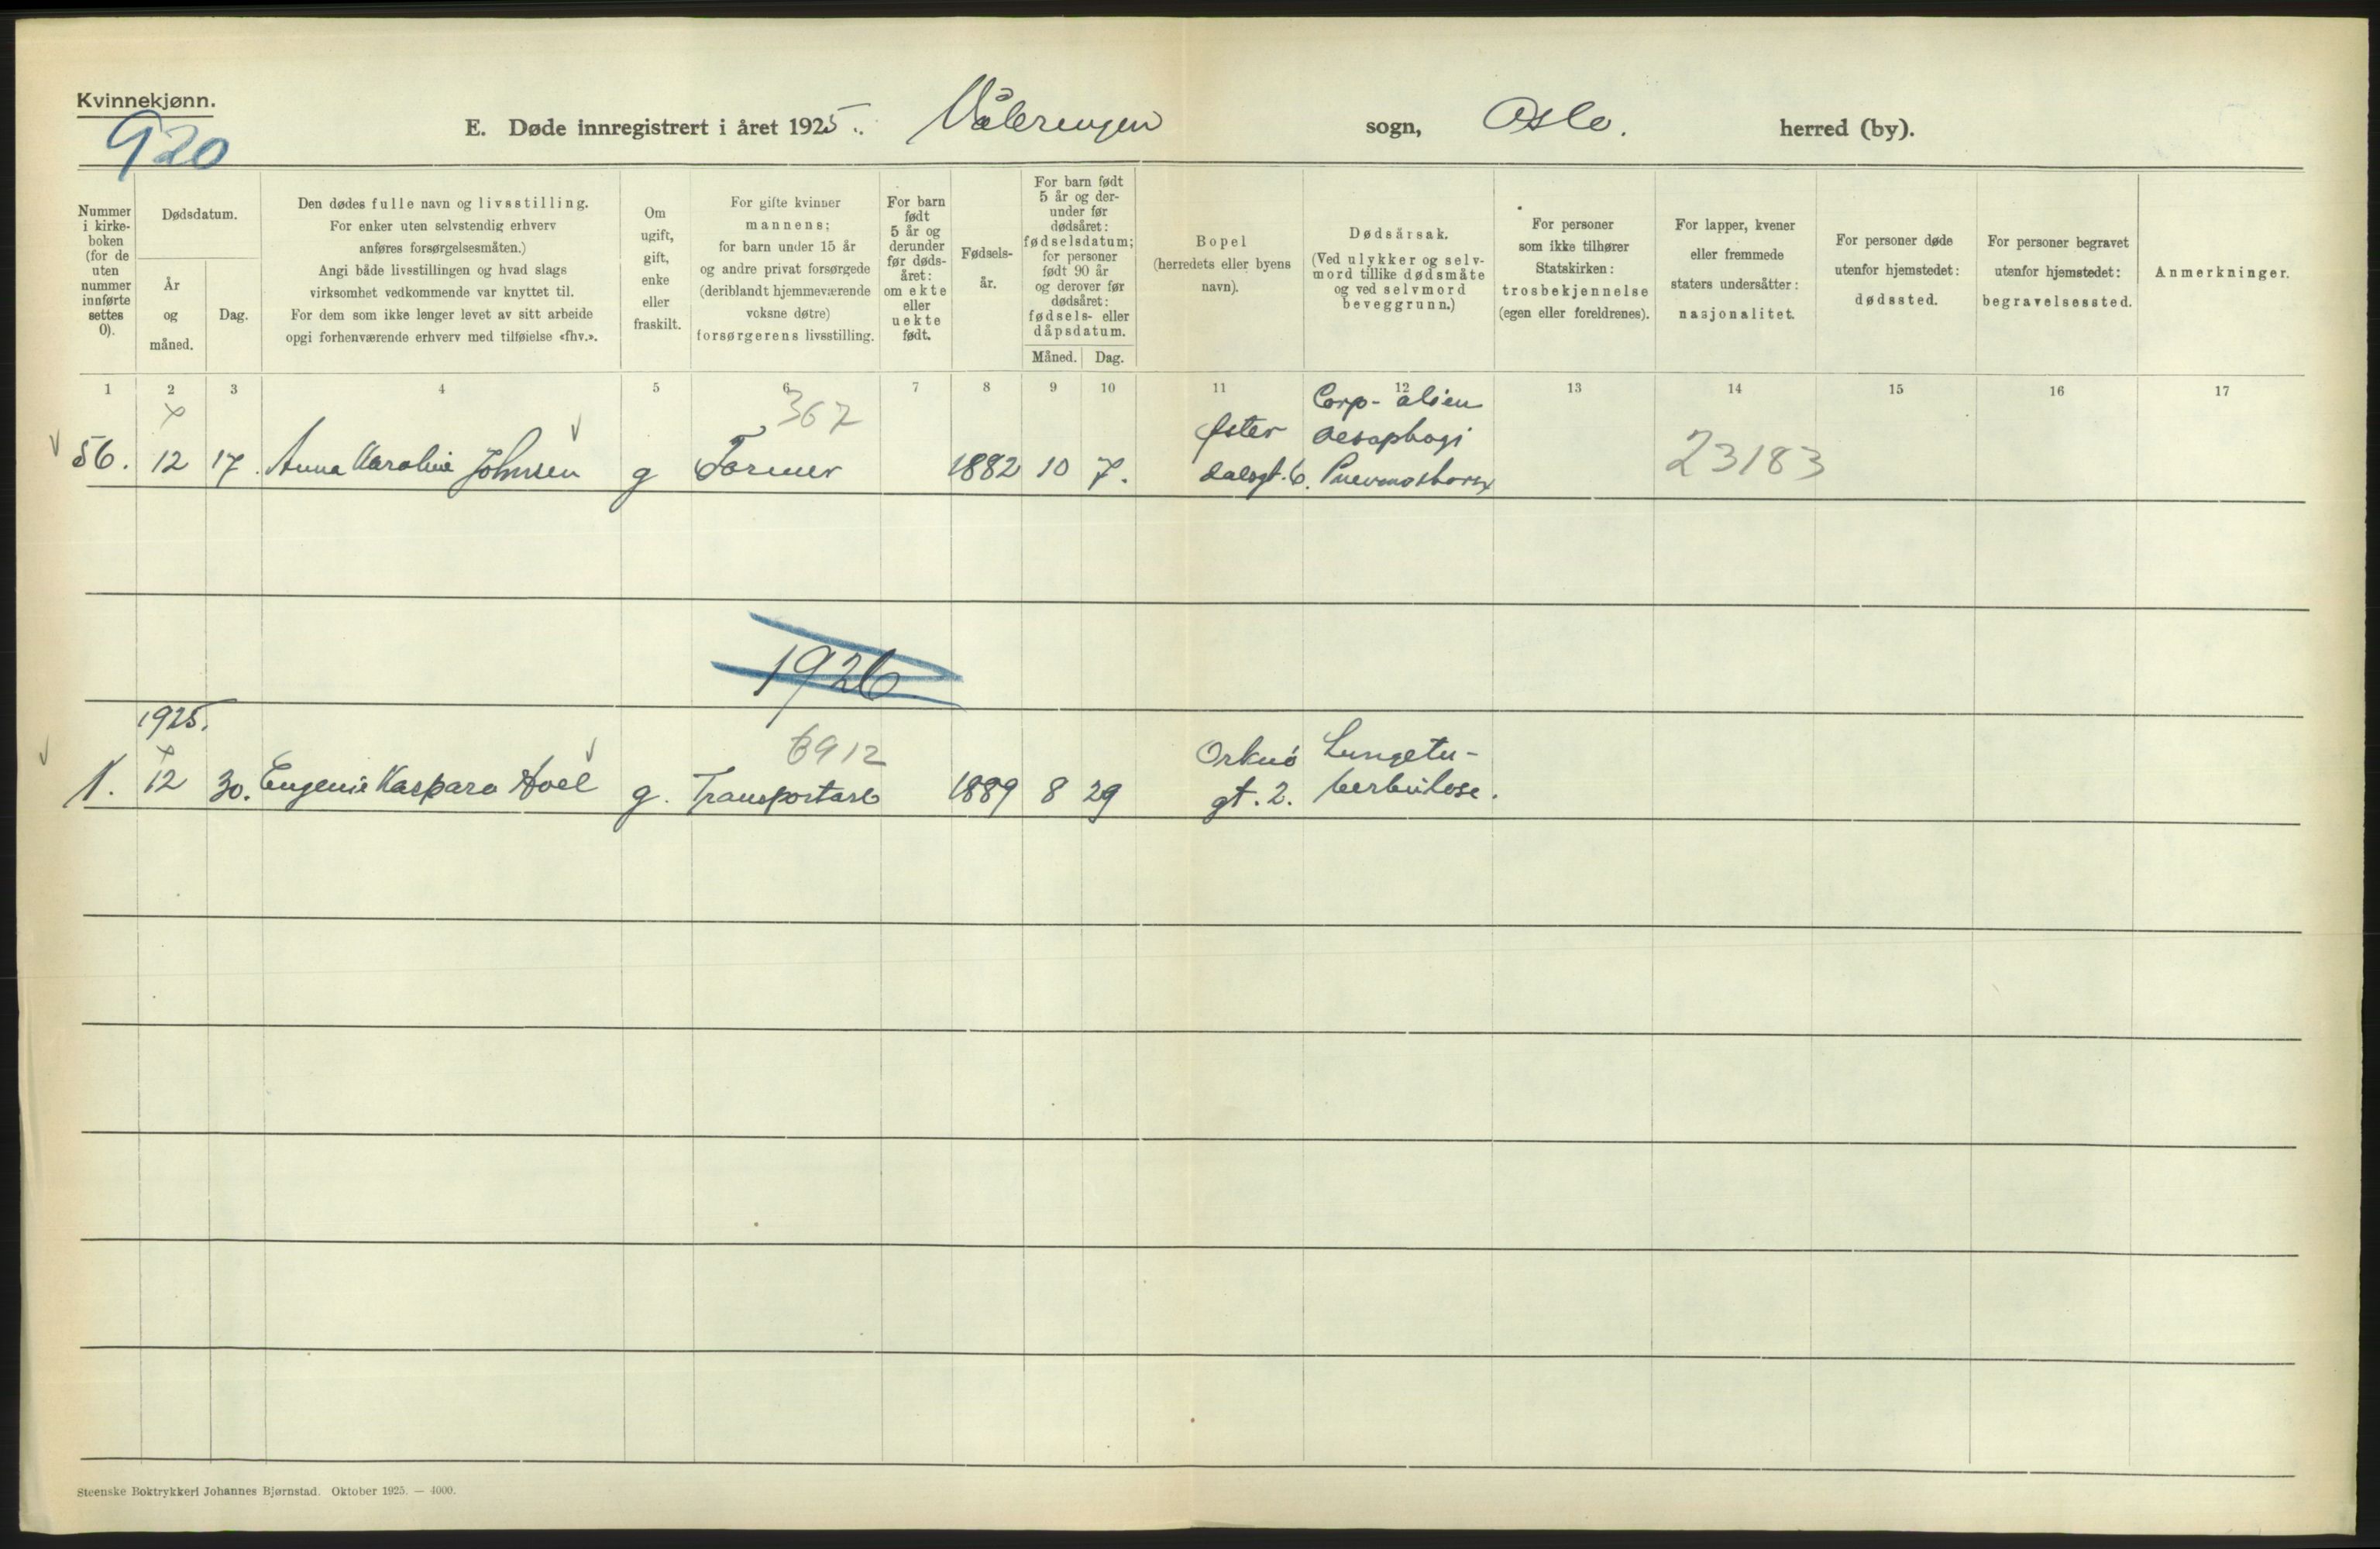 Kvinnekjønn.
920
E. Døde innregistrert i året 1925. Vålerengen sogn, Oslo. herred (by).
Nummer i kirkeboken (for de uten nummer innførte settes 0).
Dødsdatum.
År og måned.
Dag.
Den dødes fulle navn og livsstilling.
For enker uten selvstendig erhverv
anføres forsørgelsesmåten.)
Angi både livsstillingen og hvad slags
virksomhet vedkommende var knyttet til.
For dem som ikke lenger levet av sitt arbeide
opgi forhenværende erhverv med tilføielse «fhv.».
Om
ugift,
gift,
enke
eller
fraskilt.
For gifte kvinner
mannens;
for barn under 15 år
og andre privat forsørgede
(deriblandt hjemmeværende
voksne døtre)
forsørgerens livsstilling.
For barn
født
5 år og
derunder
før døds-
året:
om ekte
eller
uekte
født.
Fødsels-
år.
For barn født
5 år og der-
under før
dødsåret:
fødselsdatum;
for personer
født 90 år
og derover før
dødsåret:
fødsels- eller
dåpsdatum.
Måned. Dag.
Bopel
(herredets eller byens
navn).
Dødsårsak.
(Ved ulykker og selv-
mord tillike dødsmåte
og ved selvmord
beveggrunn.)
For personer
som ikke tilhører
Statskirken:
trosbekjennelse
(egen eller foreldrenes).
For lapper, kvener
eller fremmede
staters undersåtter:
nasjonalitet.
For personer døde
utenfor hjemstedet:
dødssted.
For personer begravet
utenfor hjemstedet:
begravelsessted.
Anmerkninger.
1 2 3 4 5 6 7 8 9 10 11 12 13 14 15 16 17
367 Corp- alien
Øster oesophagi
56. 12 17. Anna Karoline Johnsen g Former 1882 10 7. dalsgt. 6. 23183
1926
1925.
6912 Orknö Lungetu-
1. 12 30. Eugenie Kaspara Hoel g. Transportarb 1889 8 29 gt. 2. berkulose.
Steenske Boktrykkeri Johannes Bjørnstad. Oktober 1925. — 4000.